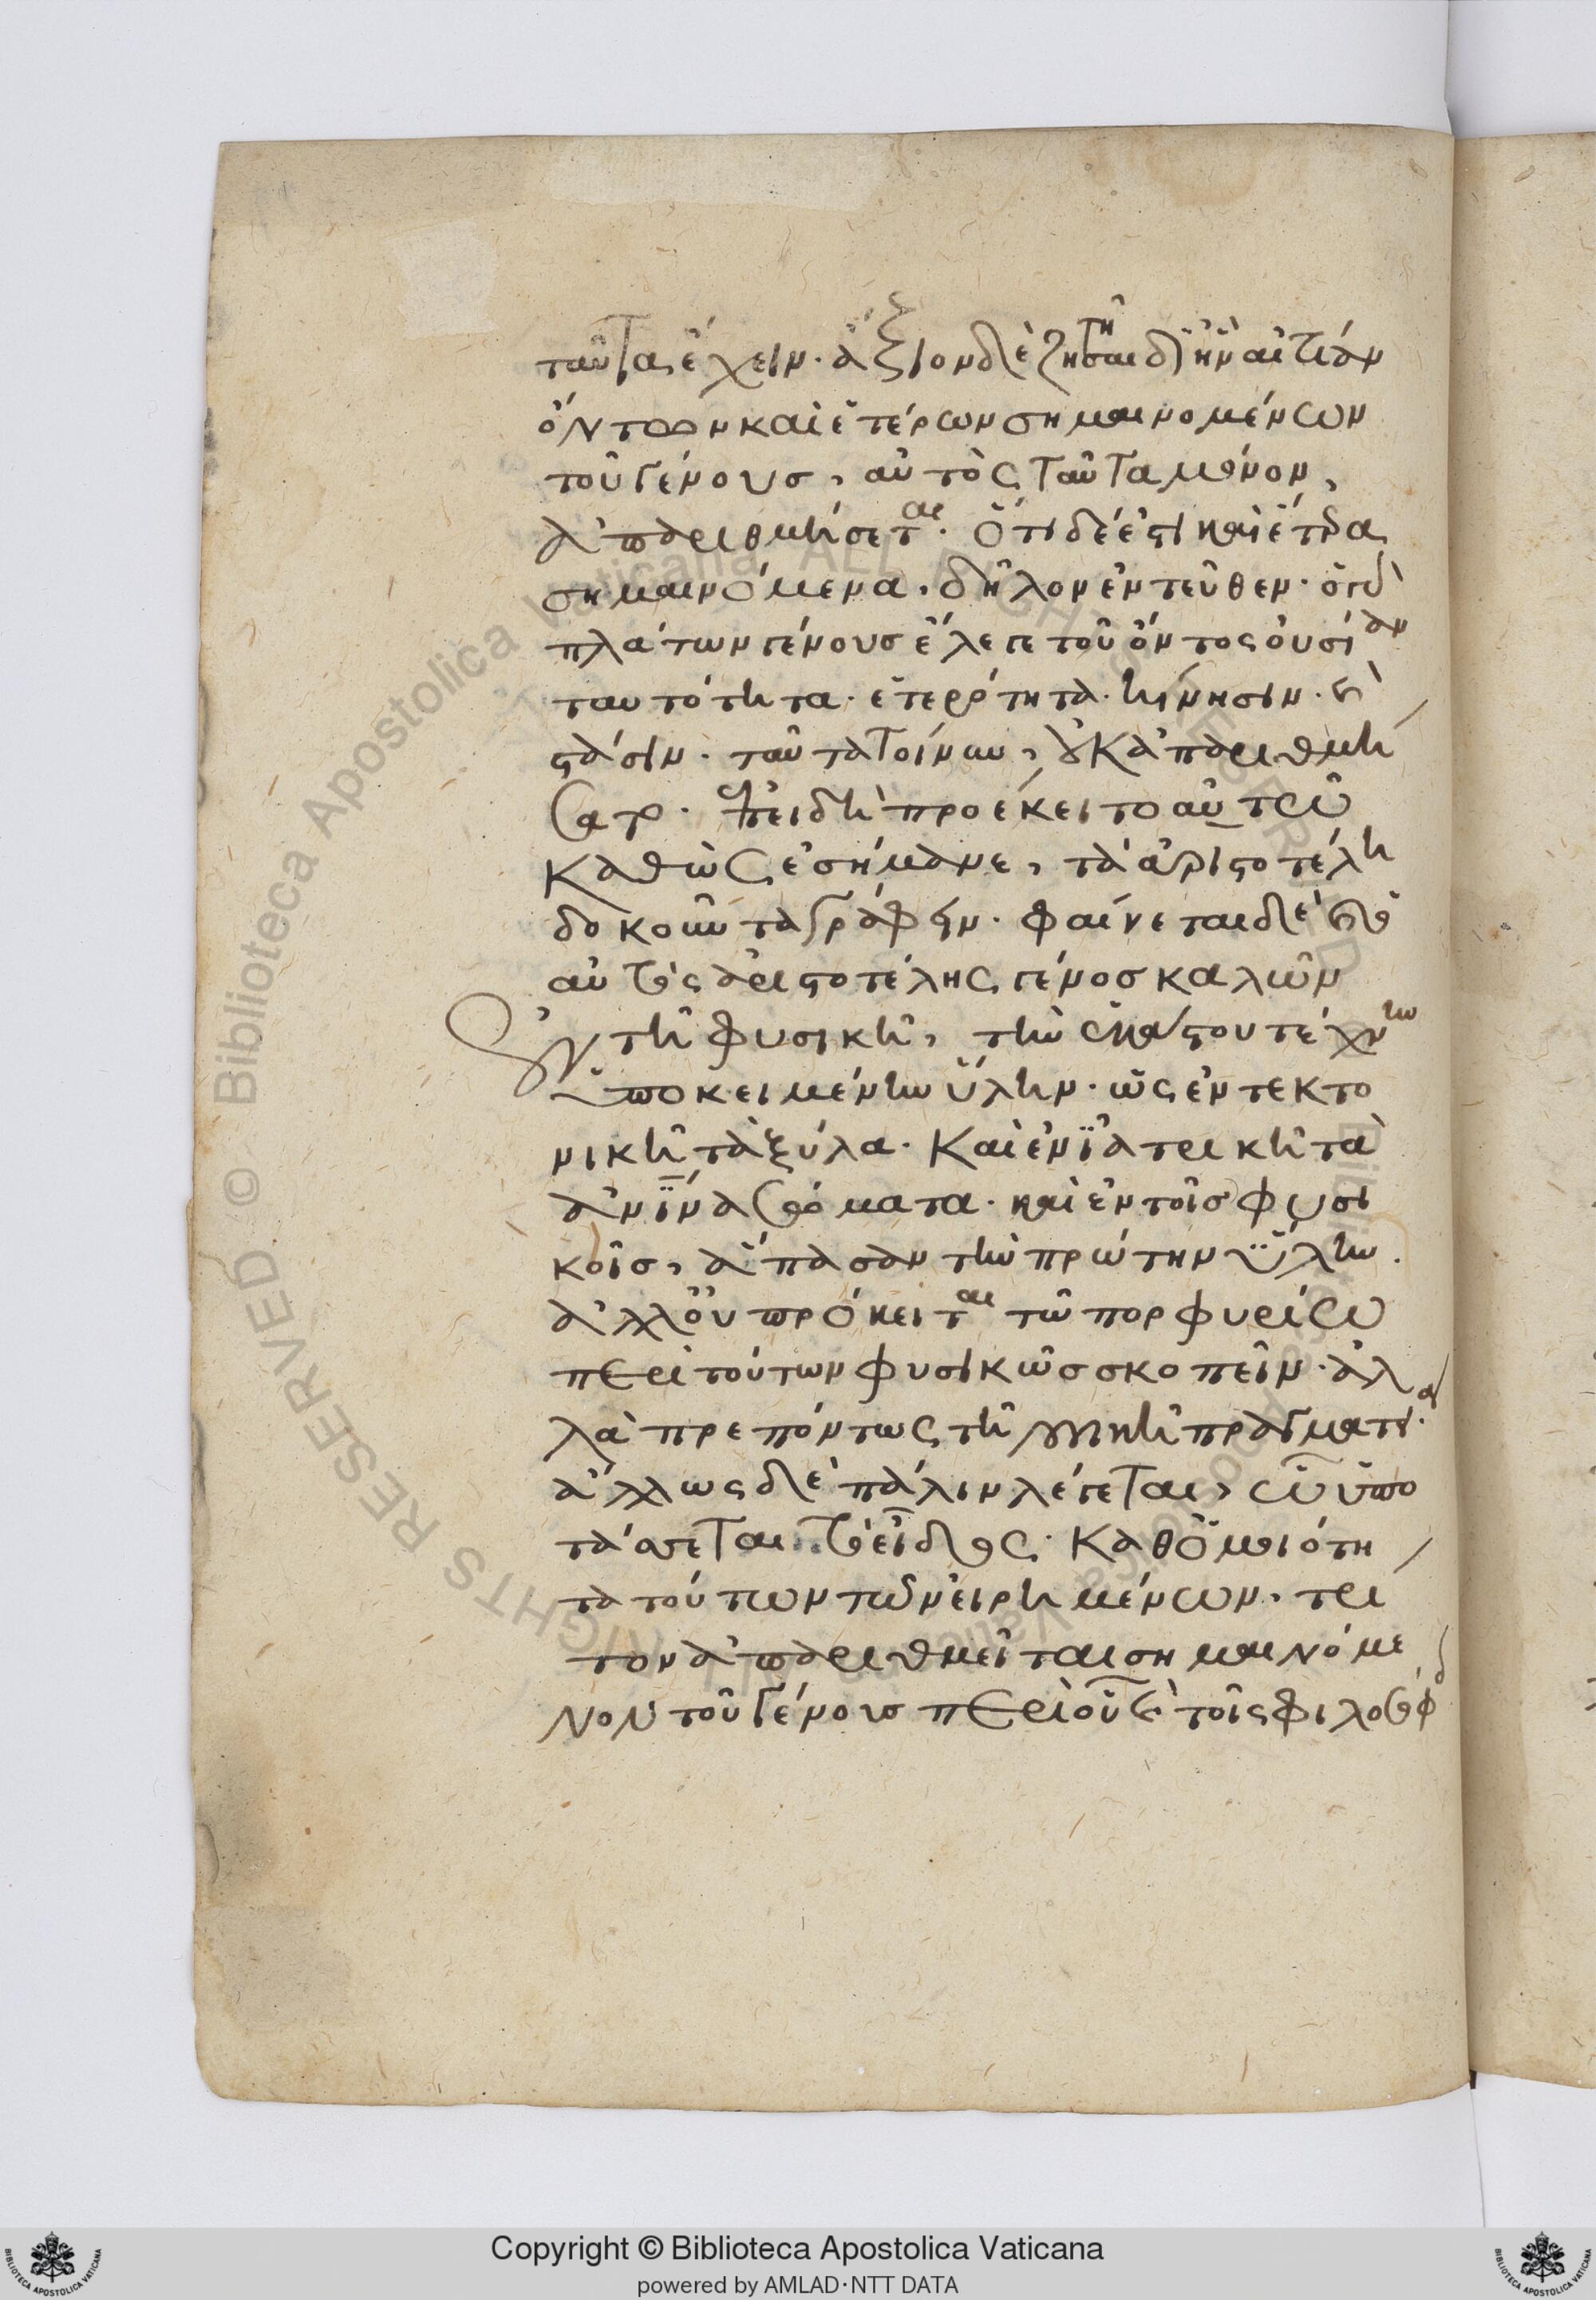 ταῦτα ἔχειν. ἄξιον δὲ ζητῆσαι δι' ἣν αἰτίαν
ὄντων καὶ ἑτέρων σημαινομένων
τοῦ γένους, αὐτὸς ταῦτα μόνον,
ἀπαριθμήσεται. Ὅτι δέ ἐστι καὶ ἕτερα
σημαινόμενα, δῆλον ἐντεῦθεν. ὅτι
πλάτων γένους ἔλεγε τοῦ ὄντος οὐσίαν
ταυτότητα. ἑτερότητα. κίνησιν. καὶ
στάσιν. ταῦτα τοίνυν, οὐκ ἀπαριθμή
σατο. ἐπειδὴ προέκειτο αὐτῶ
καθὼς ἐσήμανε, τὰ ἀριστοτέλη
δοκοῦντα γράφειν. φαίνεται δὲ καὶ
αὐτὸς ἀριστοτέλης γένος καλῶν
ἐν τῆ φυσικῆ, τὴν ἑκάστου τέχνην
ὑποκειμένην ὕλην. ὡς ἐν τεκτο
νικῆ τὰ ξύλα. Καὶ ἐν ἰατρικῆ τὰ
ἀνϊνα σώματα. καὶ ἐν τοῖς φυσι
κοῖς, ἅπασαν τὴν πρώτην ὕλην.
ἀλλ' οὐ πρόκειται τῶ πορφυρίω
περὶ τούτων φυσικῶς σκοπεῖν. ἀλ
λὰ πρεπόντως τῆ λογικῆ πραγματεία.
ἄλλως δὲ πάλιν λέγεται, ὧ ὑπο
τάσσεται τὸ εἶδος. Καθ' ὁμοιότη
τα τούτων τῶν εἰρημένων. τρί
τον ἀπαριθμεῖται σημαινόμε
νον τοῦ γένους περὶ οὗ καὶ τοῖς φιλοσόφοις